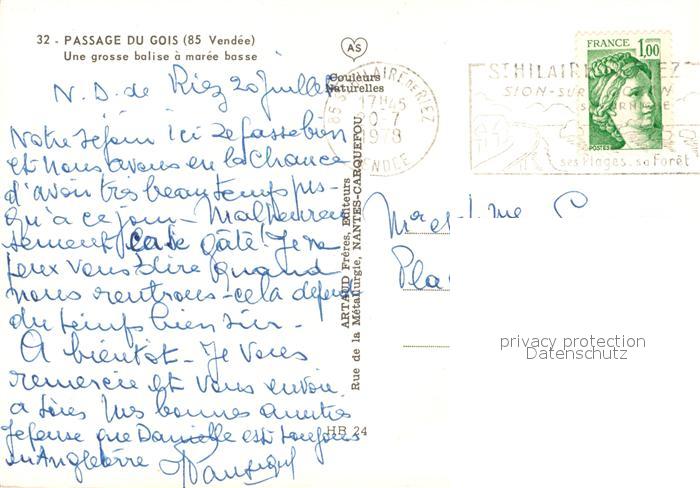 32 - PASSAGE DU GOIS (85 Vendée)
Une grosse balise à marée basse
AS
Couleurs
Naturelles
N. D. de Riez 20 juillet
Notre séjour ici se passe bien
et nous avons eu la chance
d'avoir très beau temps jus-
qu'à ce jour - Malheureu
sement ça se gâte! Je ne
peux vous dire quand
nous rentrons - cela dépend
du temps bien sûr -
A bientôt - Je vous
remercie et vous envoie
à tous mes bonnes amitiés
Je pense que Danielle est toujours
en Angleterre
ARTAUD Frères, Editeurs
Rue de la Métallurgie, NANTES-CARQUEFOU
HR 24
85 ST HILAIRE DE RIEZ
17H45
20-7
1978
VENDEE
ST HILAIRE RIEZ
SION-SUR
ses Plages. sa Forêt
FRANCE 1,00
POSTES
Mr et Mme
Pla
privacy protection
Datenschutz